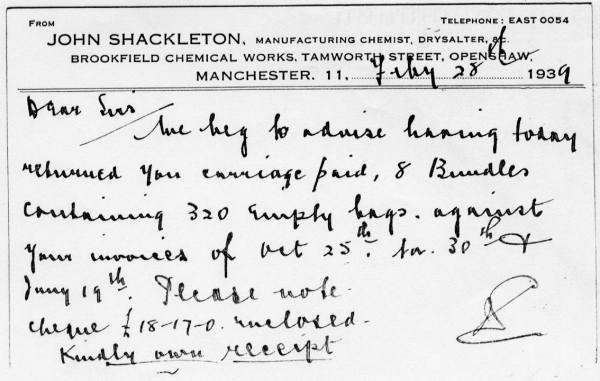 FROM TELEPHONE: EAST 0054
JOHN SHACKLETON, MANUFACTURING CHEMIST, DRYSALTER, &c.
BROOKFIELD CHEMICAL WORKS, TAMWORTH STREET, OPENSHAW,
MANCHESTER. 11, Feby 28th 1939
Dear Sirs
We beg to advise having today
returned you carriage paid, 8 Bundles
containing 320 Empty bags. against
your invoices of Oct 25th. 30th &
Jany 19th. Please note
cheque £18-17-0. enclosed.
Kindly own receipt